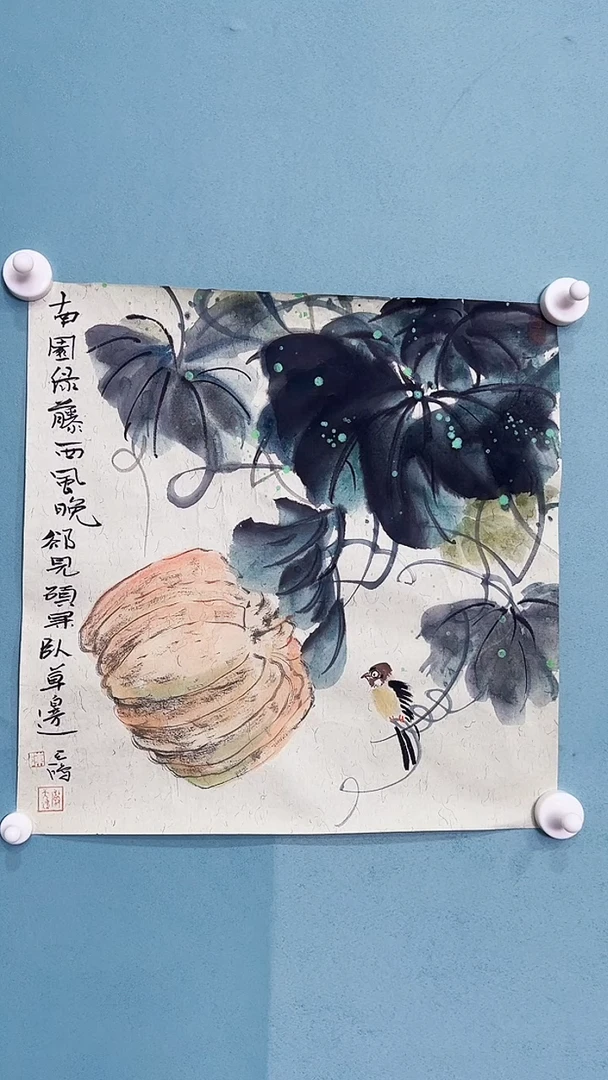 南園綠藤西風晚郤見碩果臥草邊